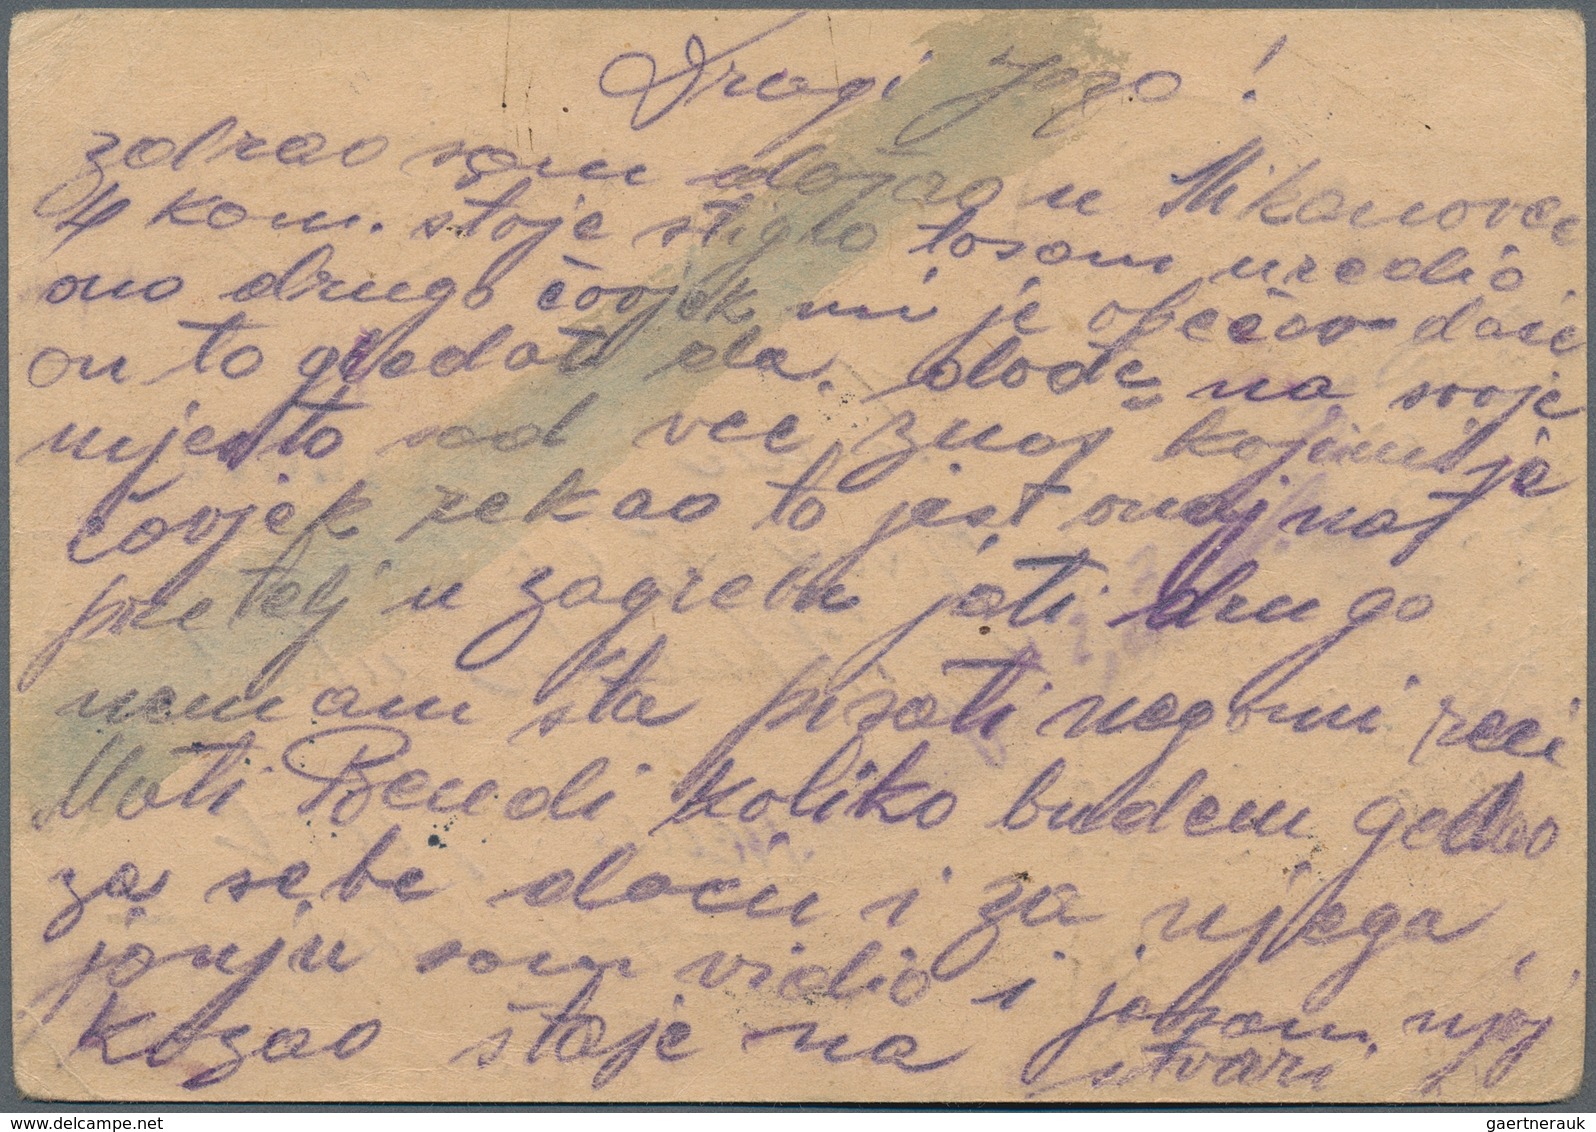 Dragi Jozo!
zdrao sam došao u Mikanovci
4 kom. stoje stiglo tosam uredio
ono drugo čovjek mi je obećao daće
on to gledati da. dođe na svoje
mjesto sad već znaš kojimi je
čovjek rekao to jest onaj naš
pretelj u zagrebu jati drugo
nemam šta pisati negomi reci
Mati Bendi koliko budem gedao
za sebe daću i za njega
janju sam vidio i jasam njoj
kazao štaje na stvari
gaertnerauk